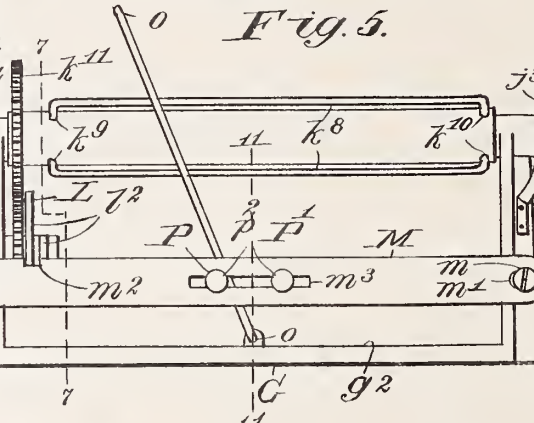 Fig. 5.
O
7
k11
j3
k9
k8
k10
11
L
l2
P
p2
P1
M
m2
m3
m
m1
O
G
g2
7
11